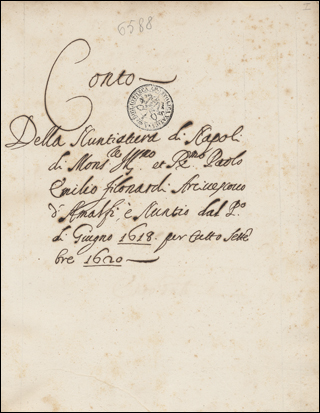 6588
Conto
Della Nuntiatura di Napoli
di Mons.re Ill.mo et R.mo Paolo
Emilio filonardi Arciuescouo
d'Amalfi, è Nuntio dal p.o
di Giugno 1618. per tutto Settē
bre 1620